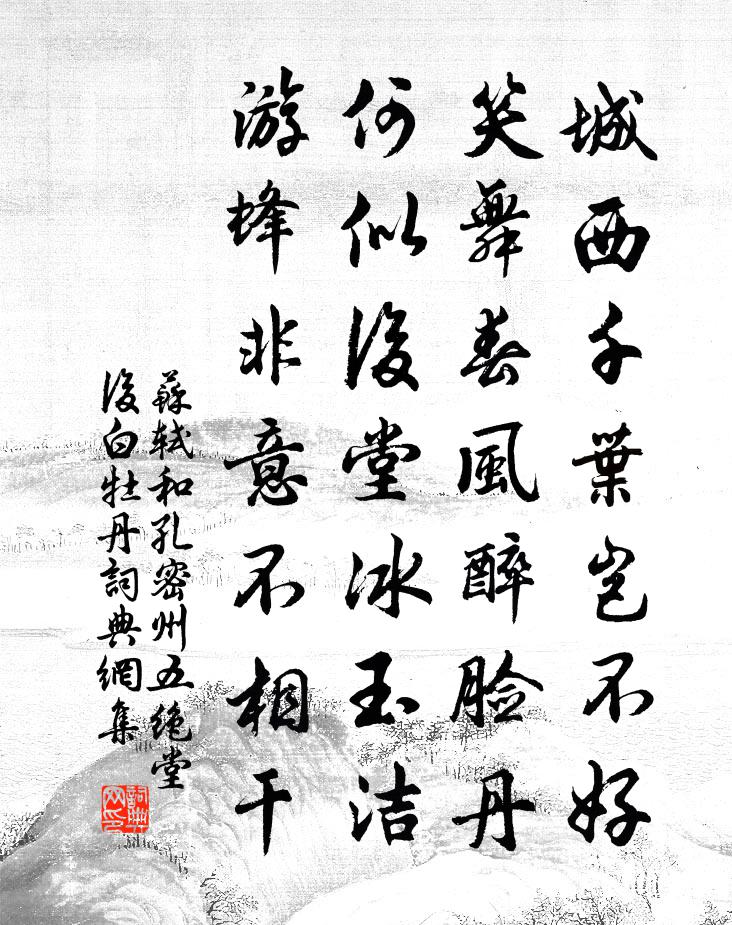 城西千葉豈不好
笑舞春風醉臉丹
何似後堂冰玉洁
游蜂非意不相干
蘇軾和孔密州五絕堂
後白牡丹詞典網集
詞典
网印